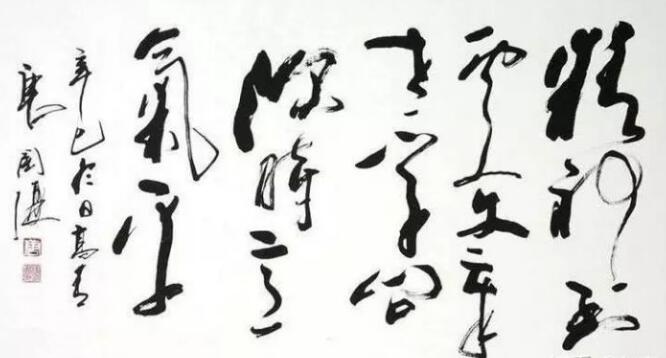 精神到
處文章
老學問
深時意
氣平
辛巳冬日